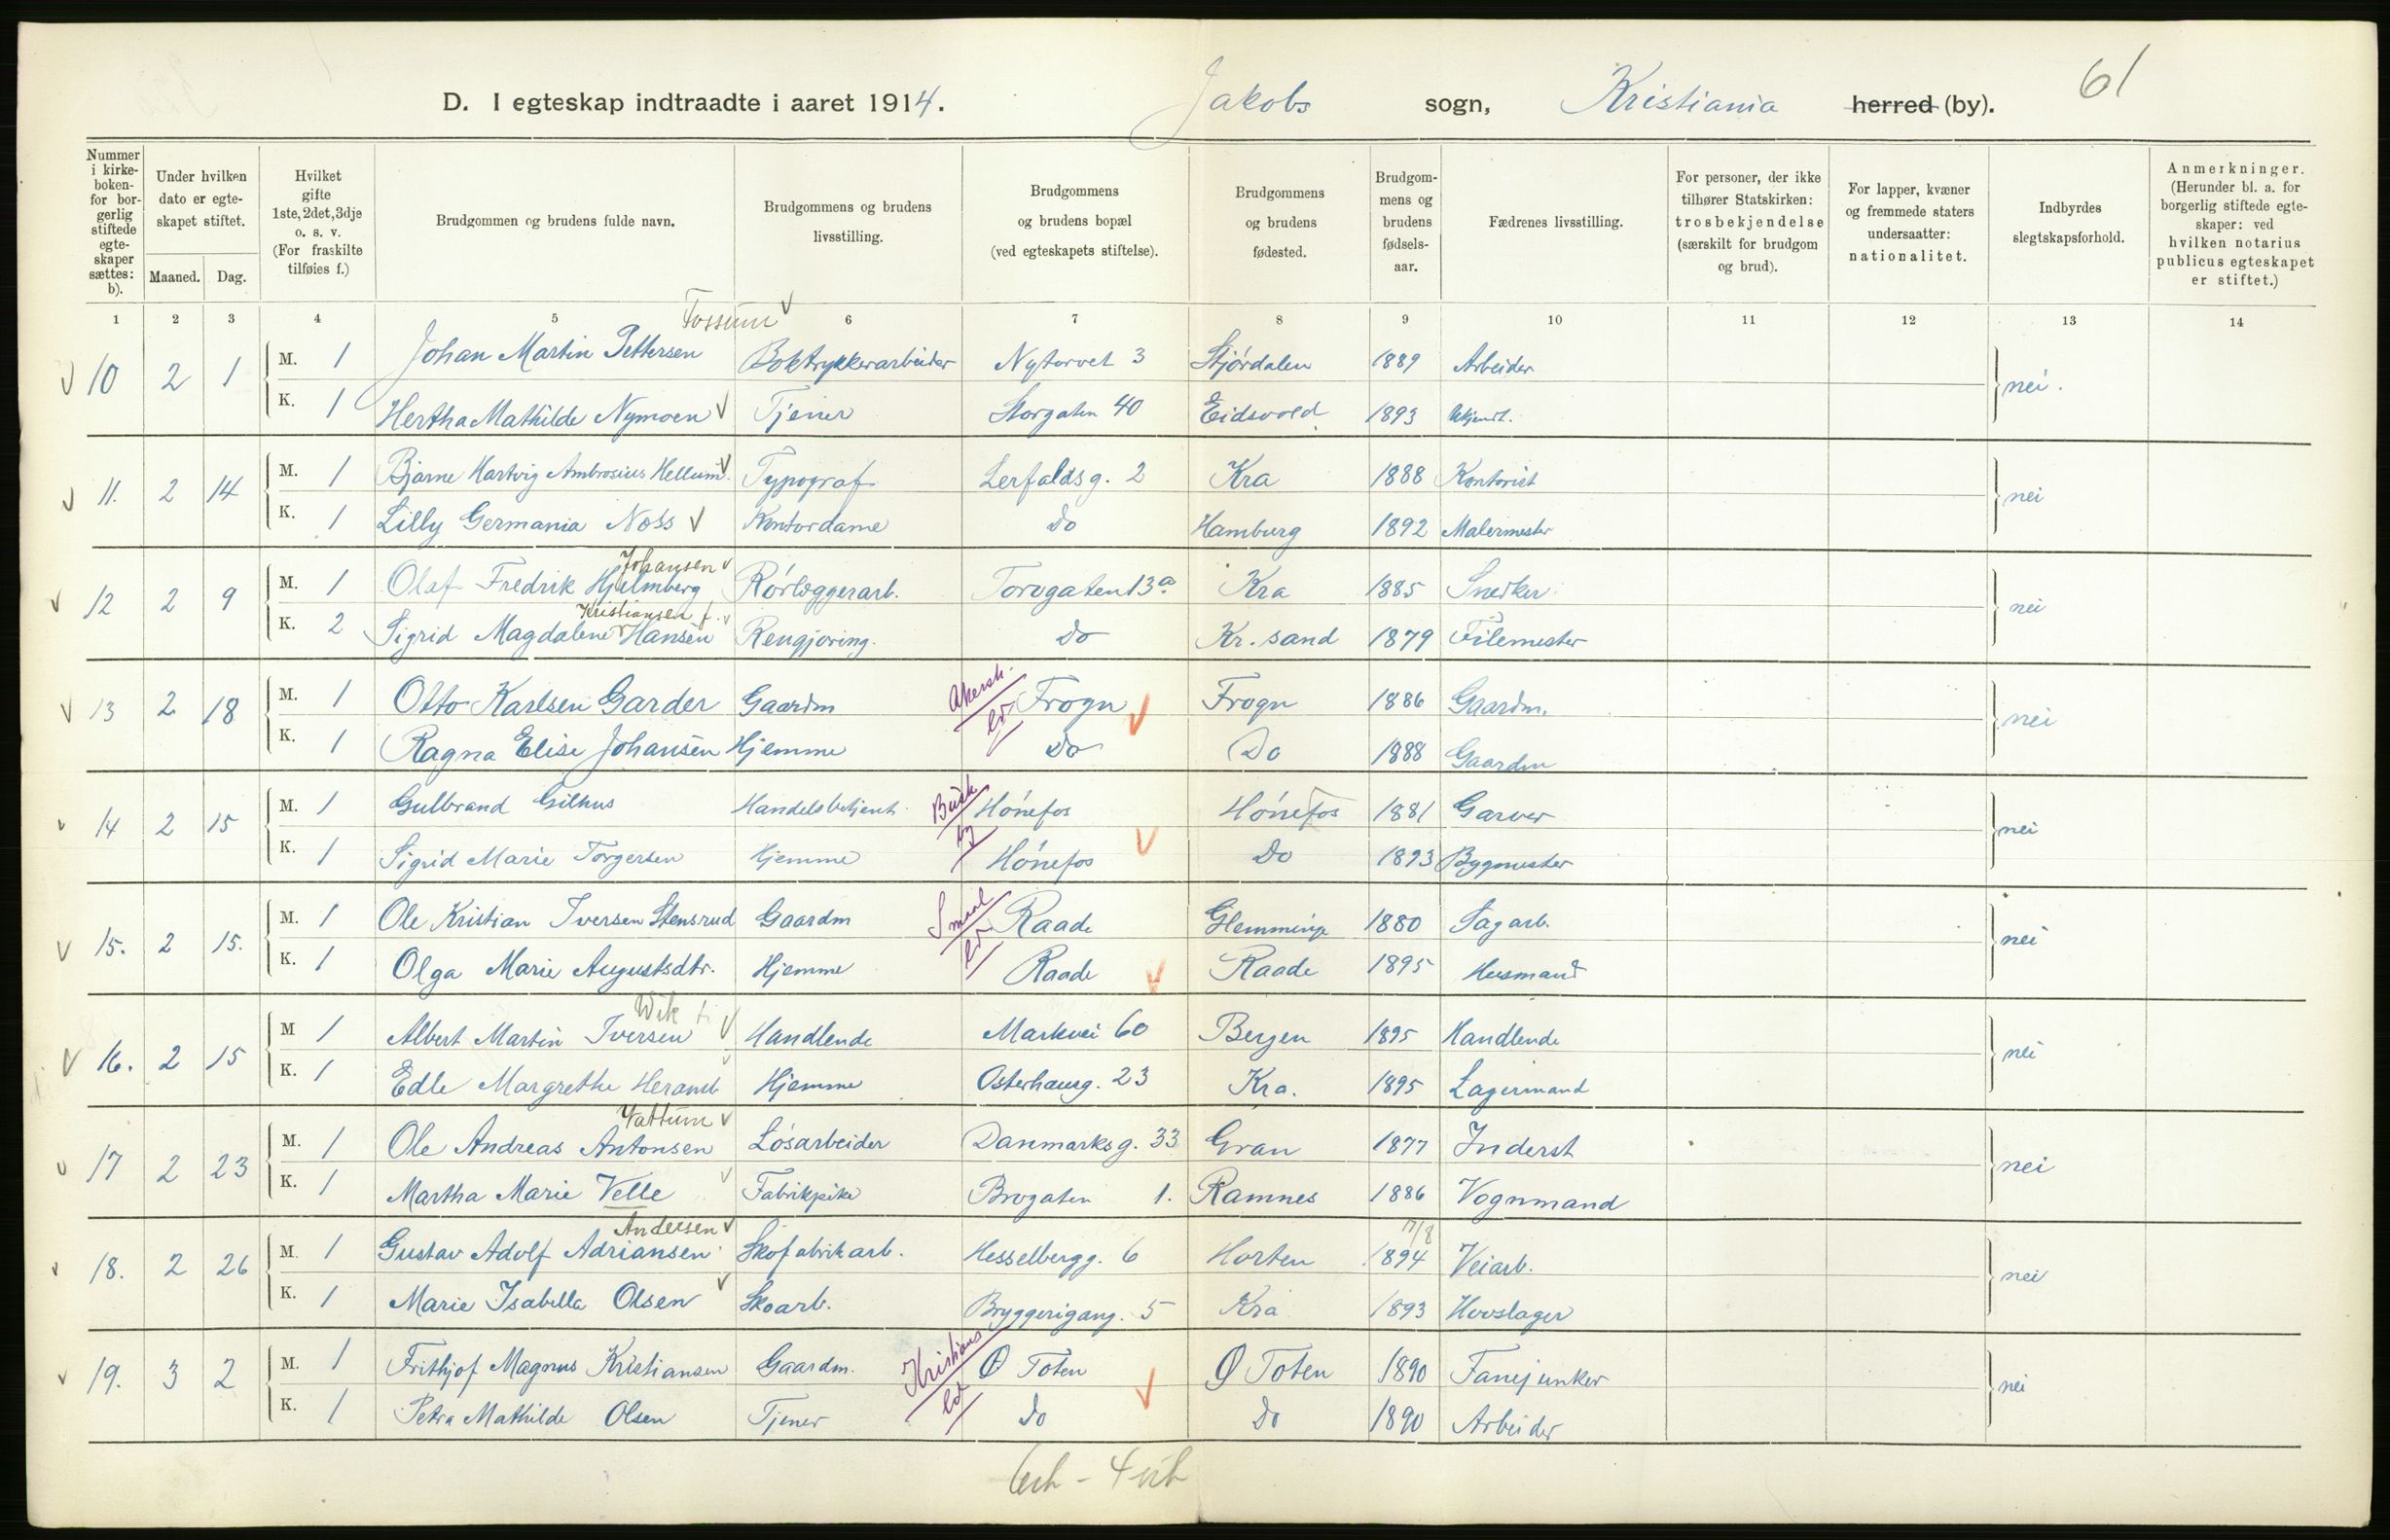 61
D. I egteskap indtraadte i aaret 1914. Jakobs sogn, Kristiania herred (by).
Nummer i kirkeboken- for borgerlig stiftede egteskaper sættes: b).
Under hvilken dato er egteskapet stiftet.
Maaned. Dag.
Hvilket gifte 1ste, 2det, 3dje o. s. v. (For fraskilte tilføies f.)
Brudgommen og brudens fulde navn.
Brudgommens og brudens livsstilling.
Brudgommens og brudens bopæl (ved egteskapets stiftelse).
Brudgommens og brudens fødested.
Brudgommens og brudens fødselsaar.
Fædrenes livsstilling.
For personer, der ikke tilhører Statskirken: trosbekjendelse (særskilt for brudgom og brud).
For lapper, kvæner og fremmede staters undersaatter: nationalitet.
Indbyrdes slegtskapsforhold.
Anmerkninger. (Herunder bl. a. for borgerlig stiftede egteskaper: ved hvilken notarius publicus egteskapet er stiftet.)
1 2 3 4 5 6 7 8 9 10 11 12 13 14
Fossum
10 2 1 M. 1 Johan Martin Pettersen Boktrykkerarbeider Nytorvet 3 Stjørdalen 1889 Arbeider nei.
K. 1 Hertha Mathilde Nymoen Tjener Storgaten 40 Eidsvold 1893 Ukjendt.
11. 2 14 M. 1 Bjarne Hartvig Ambrosius Hellum Typograf Lerfaldsg. 2 Kra 1888 Kontorist nei
K. 1 Lilly Germania Noss Kontordame Do Hamburg 1892 Malermester
Johansen
12 2 9 M. 1 Olaf Fredrik Hjelmberg Rørlæggerarb. Torvgaten 13a Kra 1885 Snedker nei
Kristiansen f.
K. 2 Sigrid Magdalene Hansen Rengjøring. Do Kr.sand 1879 Filemester
13 2 18 M. 1 Otto Karlsen Garder Gaardm Akersh. ld Frogn Frogn 1886 Gaardm. nei
K. 1 Ragna Elise Johansen Hjemme Do Do 1888 Gaardm
14 2 15 M. 1 Gulbrand Gilhus Handelsbetjent. Busk by Hønefos Hønefos 1881 Garver nei
K. 1 Sigrid Marie Torgersen Hjemme Hønefos Do 1893 Bygmester
15. 2 15. M. 1 Ole Kristian Iversen Stensrud Gaardm Smaal ld Raade Glemminge 1880 Sagarb. nei
K. 1 Olga Marie Augustsdtr. Hjemme Raade Raade 1895 Husmand
Wik
16. 2 15 M 1 Albert Martin Iversen Handlende Markvei 60 Bergen 1895 Handlende nei
K. 1 Edle Margrethe Heramb Hjemme Osterhausg. 23 Kra. 1895 Lagermand
Tattum
17 2 23 M. 1 Ole Andreas Antonsen Løsarbeider Danmarksg. 33 Gran 1877 Inderst nei
K. 1 Martha Marie Velle Fabrikpike Brogaten 1. Ramnes 1886 Vognmand
Andersen 17/8
18. 2 26 M. 1 Gustav Adolf Adriansen Skofabrikarb. Hesselbergg. 6 Horten 1894 Veiarb. nei
K. 1 Marie Isabella Olsen Skoarb. Bryggerigang. 5 Kra 1893 Hovslager
19. 3 2 M. 1 Frithjof Magnus Kristiansen Gaardm. Kristians ld Ø Toten Ø Toten 1890 Fanejunker nei
K. 1 Petra Mathilde Olsen Tjener Do Do 1890 Arbeider